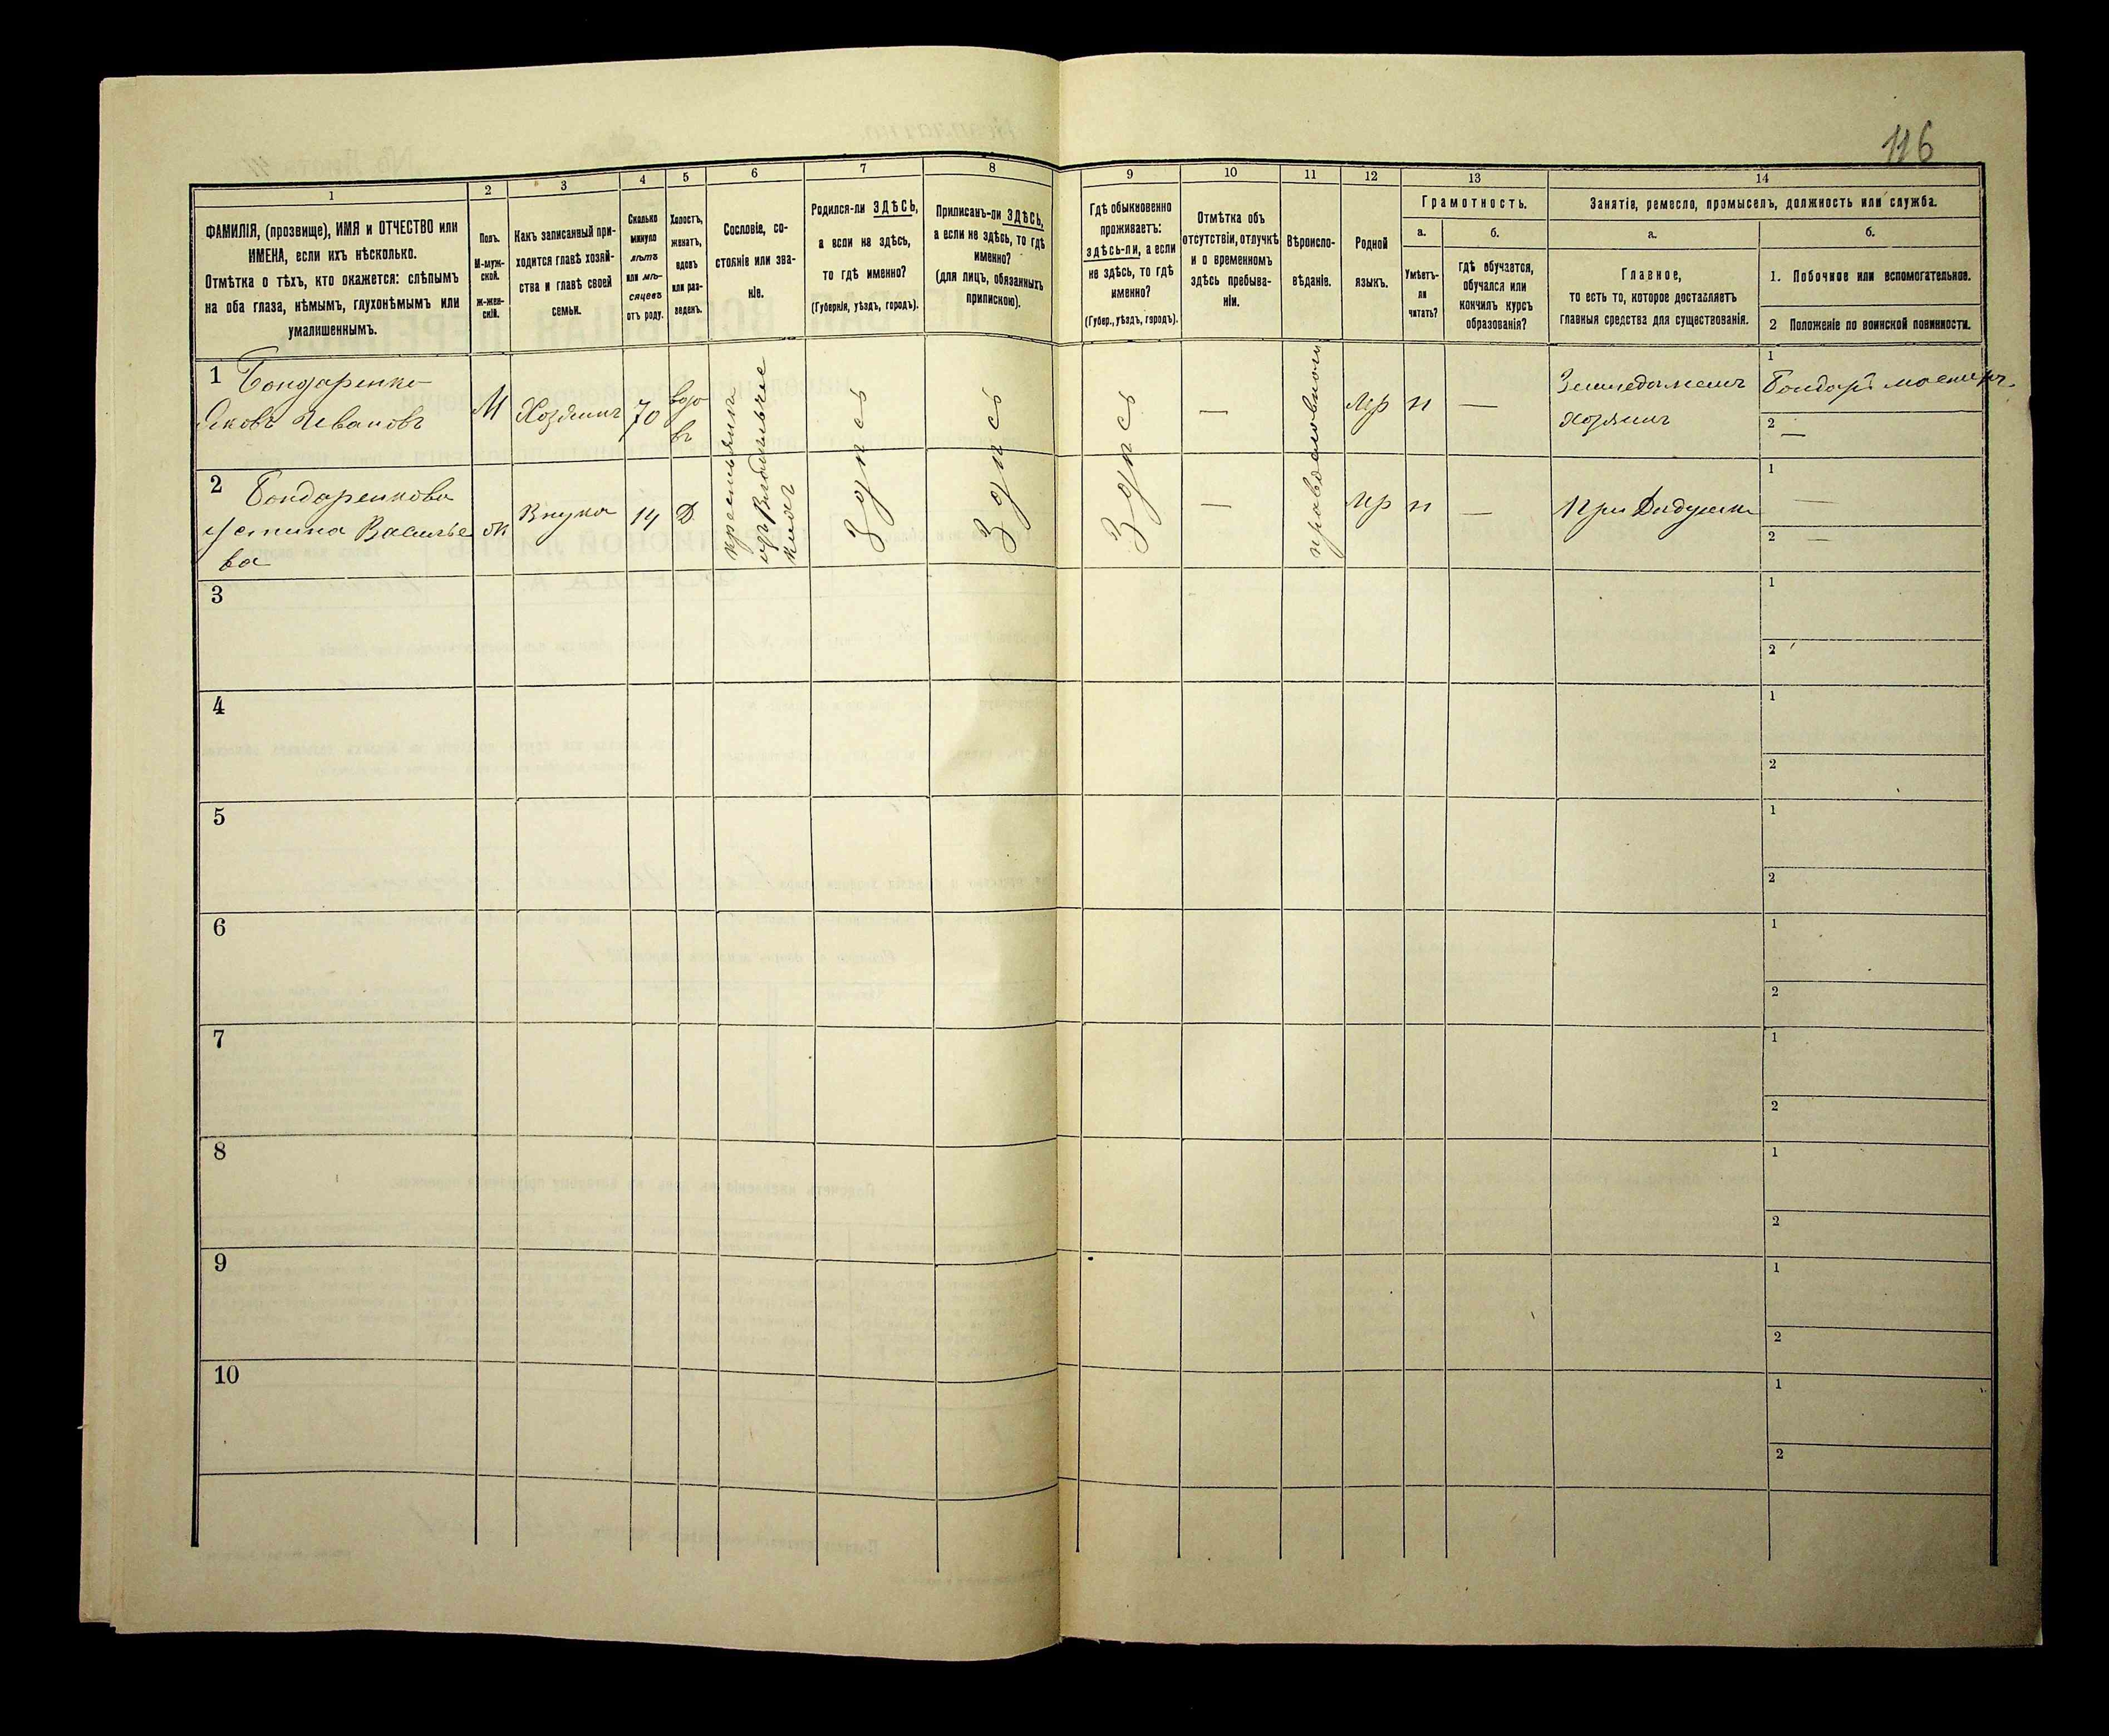 116
1
2
3
4
5
6
7
8
9
10
11
12
13
14
ФАМИЛІЯ, (прозвище), ИМЯ и ОТЧЕСТВО или
ИМЕНА, если ихъ нѣсколько.
Отмѣтка о тѣхъ, кто окажется: слѣпымъ
на оба глаза, нѣмымъ, глухонѣмымъ или
умалишеннымъ.
Полъ.
М-муж-
ской.
ж-жен-
скій.
Какъ записанный при-
ходится главѣ хозяй-
ства и главѣ своей
семьи.
Сколько
минуло
лѣтъ
или мѣ-
сяцевъ
отъ роду.
Холостъ,
женатъ,
вдовъ
или раз-
веденъ.
Сословіе, со-
стояніе или зва-
ніе.
Родился-ли ЗДѢСЬ,
а если не здѣсь,
то гдѣ именно?
(Губернія, уѣздъ, городъ).
Приписанъ-ли ЗДѢСЬ,
а если не здѣсь, то гдѣ
именно?
(для лицъ, обязанныхъ
припискою).
Гдѣ обыкновенно
проживаетъ:
здѣсь-ли, а если
не здѣсь, то гдѣ
именно?
(Губер., уѣздъ, городъ).
Отмѣтка объ
отсутствіи, отлучкѣ
и о временномъ
здѣсь пребыва-
ніи.
Вѣроиспо-
вѣданіе.
Родной
языкъ.
Грамотность.
а.
Умѣетъ-
ли
читать?
б.
гдѣ обучается,
обучался или
кончилъ курсъ
образованія?
Занятіе, ремесло, промыселъ, должность или служба.
а.
Главное,
то есть то, которое доставляетъ
главныя средства для существованія.
б.
1. Побочное или вспомогательное.
2 Положеніе по воинской повинности.
1 Бондаренко
Яковъ Ивановъ
М
Хозяинъ
70
вдо
въ
крестьянинъ
изъ
Здѣсь
Здѣсь
Здѣсь
—
православного
Мр
н
—
Земледѣлецъ
Хозяинъ
1
Бондарь мастеръ
2 —
2 Бондаренкова
Устина Василье
ва
ж
Внука
14
Д
—
Мр
н
—
При Дѣдушкѣ
1 —
2 —
3
1
2
4
1
2
5
1
2
6
1
2
7
1
2
8
1
2
9
1
2
10
1
2